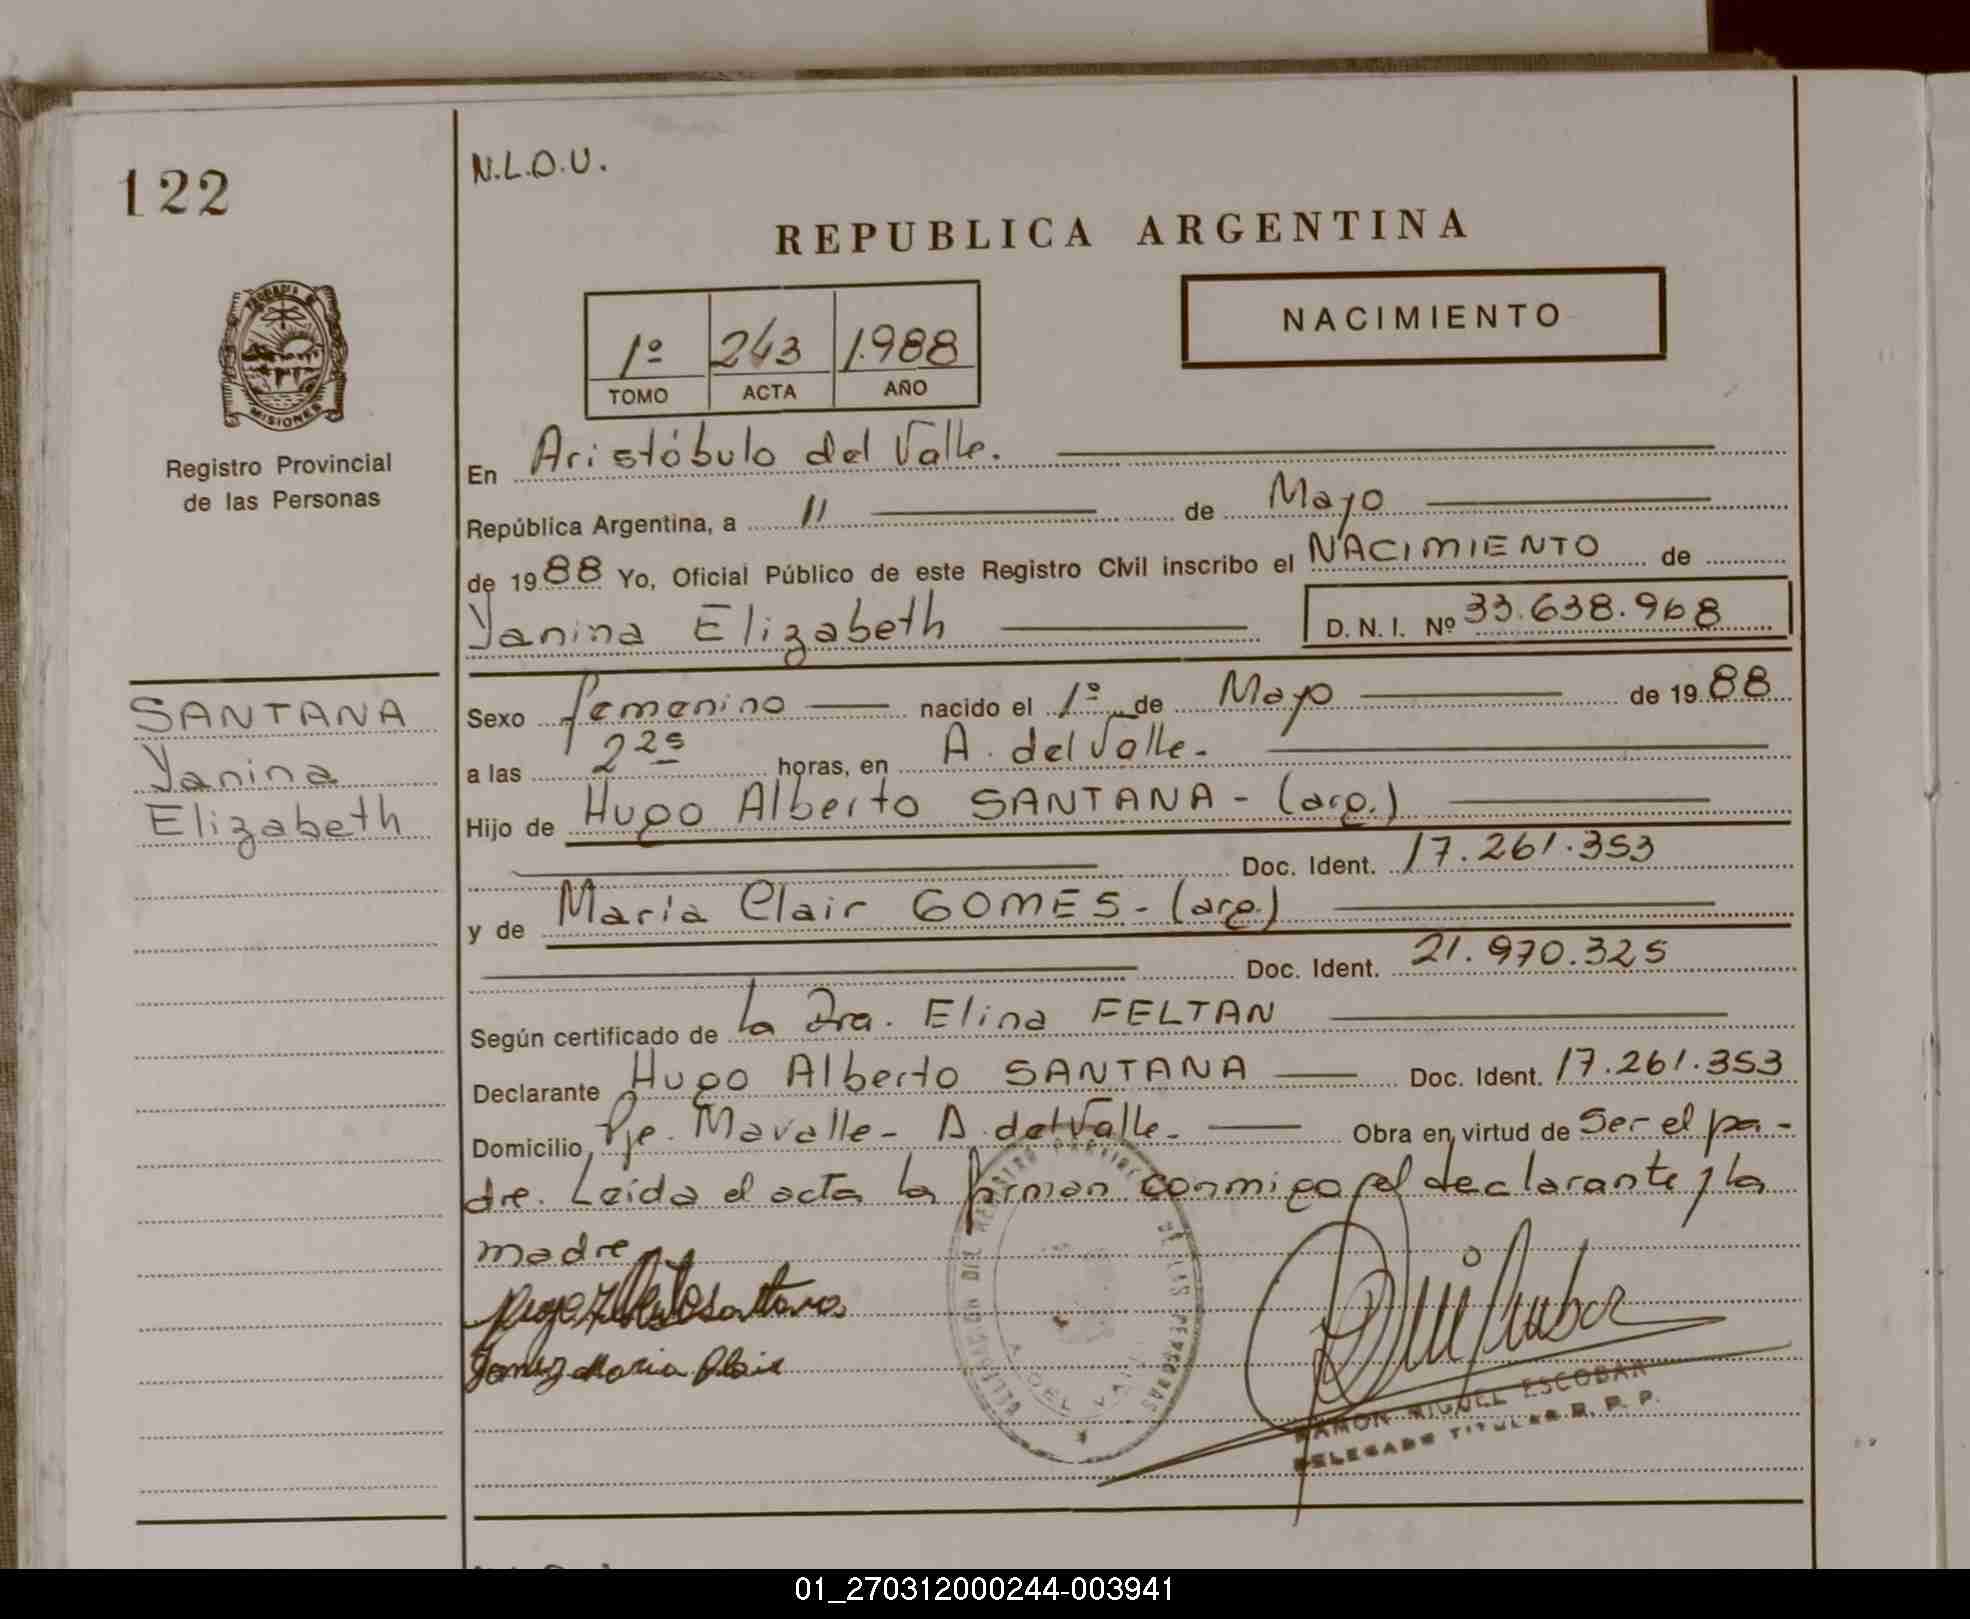 122
N.L.O.U.
REPUBLICA ARGENTINA
NACIMIENTO
1º 243 1.988
TOMO ACTA AÑO
PROVINCIA DE MISIONES
Registro Provincial
de las Personas
En Aristóbulo del Valle.
República Argentina, a 11 de Mayo
de 1988 Yo, Oficial Público de este Registro Civil inscribo el NACIMIENTO de
Yanina Elizabeth D.N.I. Nº 33.638.968
SANTANA
Yanina
Elizabeth
Sexo femenino nacido el 1º de Mayo de 1988
a las 2 25 horas, en A. del Valle.
Hijo de Hugo Alberto SANTANA - (arg.)
Doc. Ident. 17.261.353
y de María Clair GOMES - (arg.)
Doc. Ident. 21.970.325
Según certificado de la Dra. Elina FELTAN
Declarante Hugo Alberto SANTANA Doc. Ident. 17.261.353
Domicilio Pje. Mavalle - A. del Valle. Obra en virtud de Ser el pa-
dre. Leída el acta la firman conmigo el declarante y la
madre
Gomez Maria Clair
DELEGACION DEL REGISTRO PROVINCIAL DE LAS PERSONAS
A. DEL VALLE
RAMON MIGUEL ESCOBAR
DELEGADO TITULAR R. P. P.
01_270312000244-003941